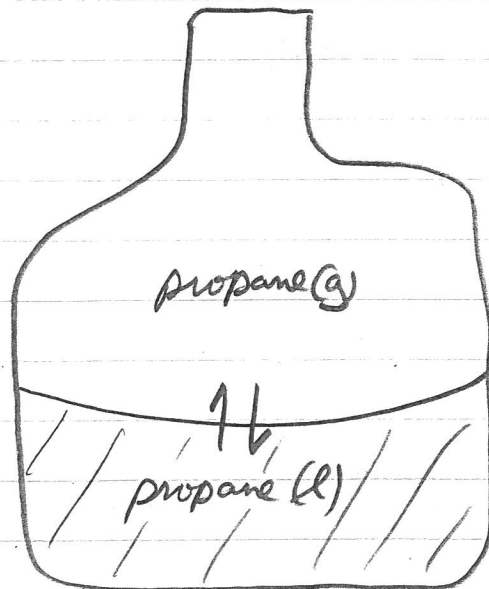 propane (g)
⇅
propane (l)